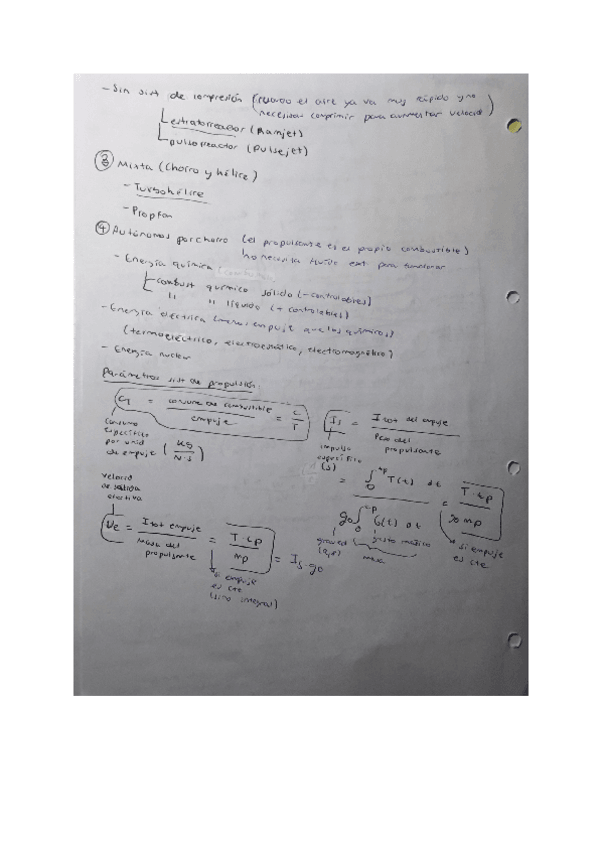 - Sin sist de compresión (cuando el aire ya va muy rápido y no
necesitas comprimir para aumentar velocid)
estratorreactor (Ramjet)
pulsorreactor (Pulsejet)
③ Mixta (Chorro y hélice)
- Turbohélice
- Propfan
④ Autónomos por chorro (el propulsante es el propio combustible)
no necesita fluido ext para funcionar
- Energía química
combust químico sólido (- controlables)
" " líquido (+ controlables)
- Energía eléctrica (menos empuje que los químicos)
(termoeléctrico, electroestático, electromagnético)
- Energía nuclear
Parámetros sist de propulsión
= consumo de combustible / empuje = c / T
consumo
específico
por unid
de empuje (kg / N·s)
Is = I tot del empuje / peso del propulsante
impulso
específico
(s)
= ∫₀^tp T(t) dt / g₀ ∫₀^tp G(t) dt = T·tp / g₀ mp
graved
gasto másico
masa
si empuje
es cte
velocid
de salida
efectiva
Ve = I tot empuje / masa del propulsante = T·tp / mp = Is·g₀
si empuje
es cte
(sino integral)